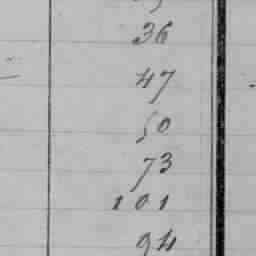 36
47
50
73
101
94